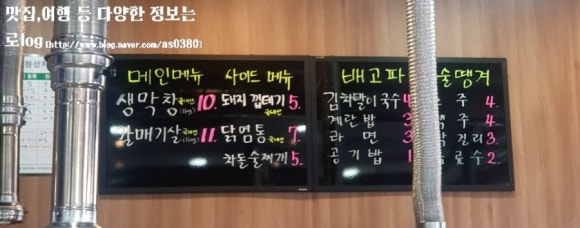 맛집,여행 등 다양한 정보는
로log [http://www.blog.naver.com/as0380]
메인메뉴 사이드 메뉴
생막창 국내산 (150g) 10. 돼지 껍데기 국내산 5.
갈매기살 국내산 (150g) 11. 닭염통 국내산 7.
차돌술찌개 5.
배고파 술땡겨
김치말이국수 4 주 4.
계란밥 3 맥주 4.
라면 3 막걸리 3.
공기밥 1 음료수 2.